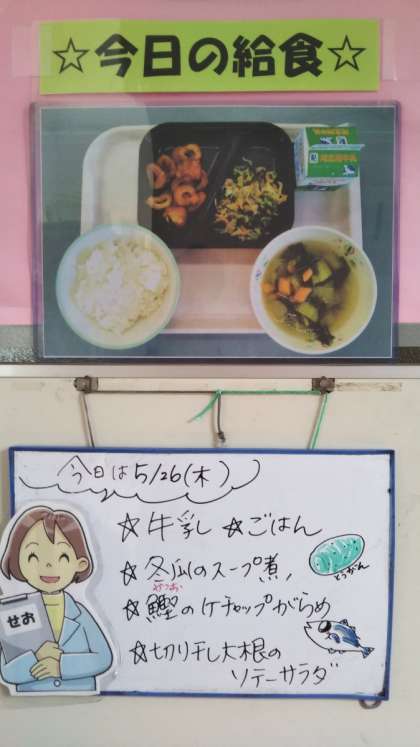 ☆今日の給食☆
今日は5/26(木)
☆牛乳 ☆ごはん
☆冬瓜のスープ煮
かつお
☆鰹のケチャップがらめ
☆切り干し大根の
ソテーサラダ
とうがん
せお